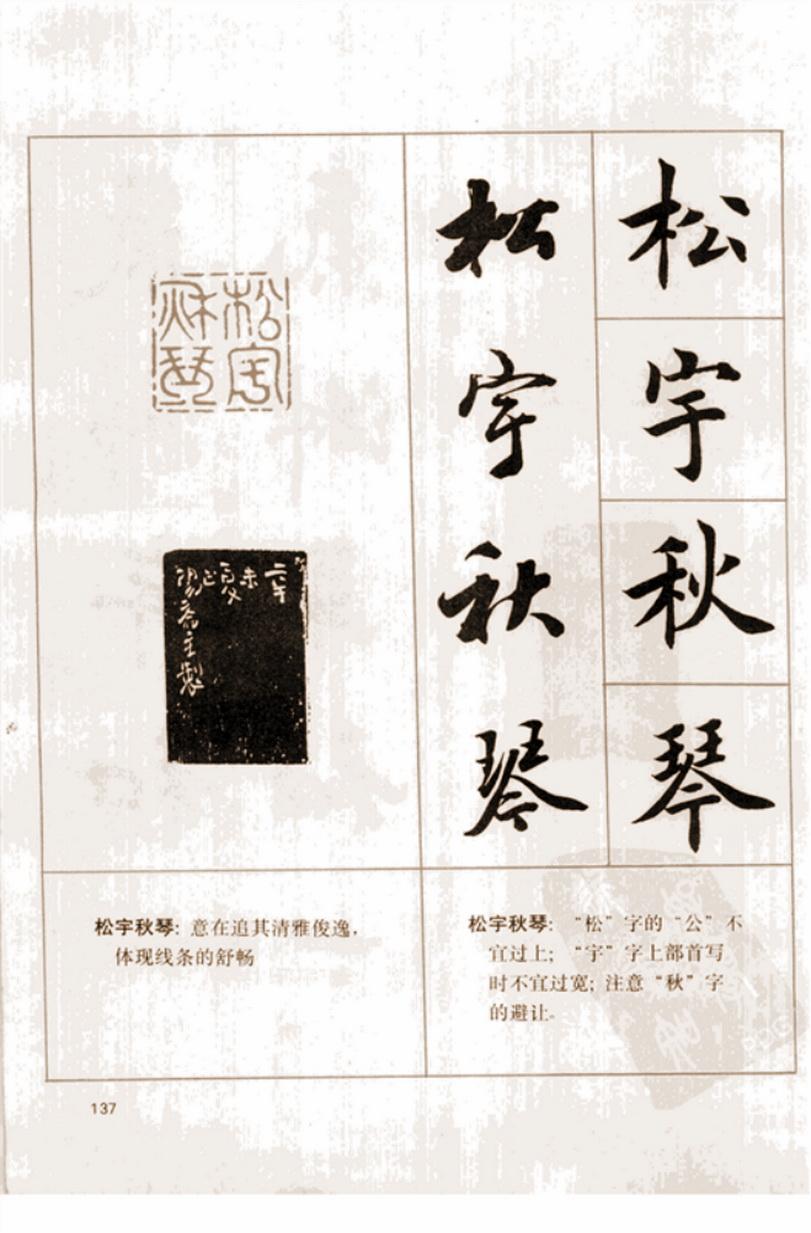 松宇秋琴
松宇秋琴
松宇
秋琴
松宇秋琴：意在追其清雅俊逸，
体现线条的舒畅
松宇秋琴：“松”字的“公”不
宜过上；“宇”字上部首写
时不宜过宽；注意“秋”字
的避让。
137